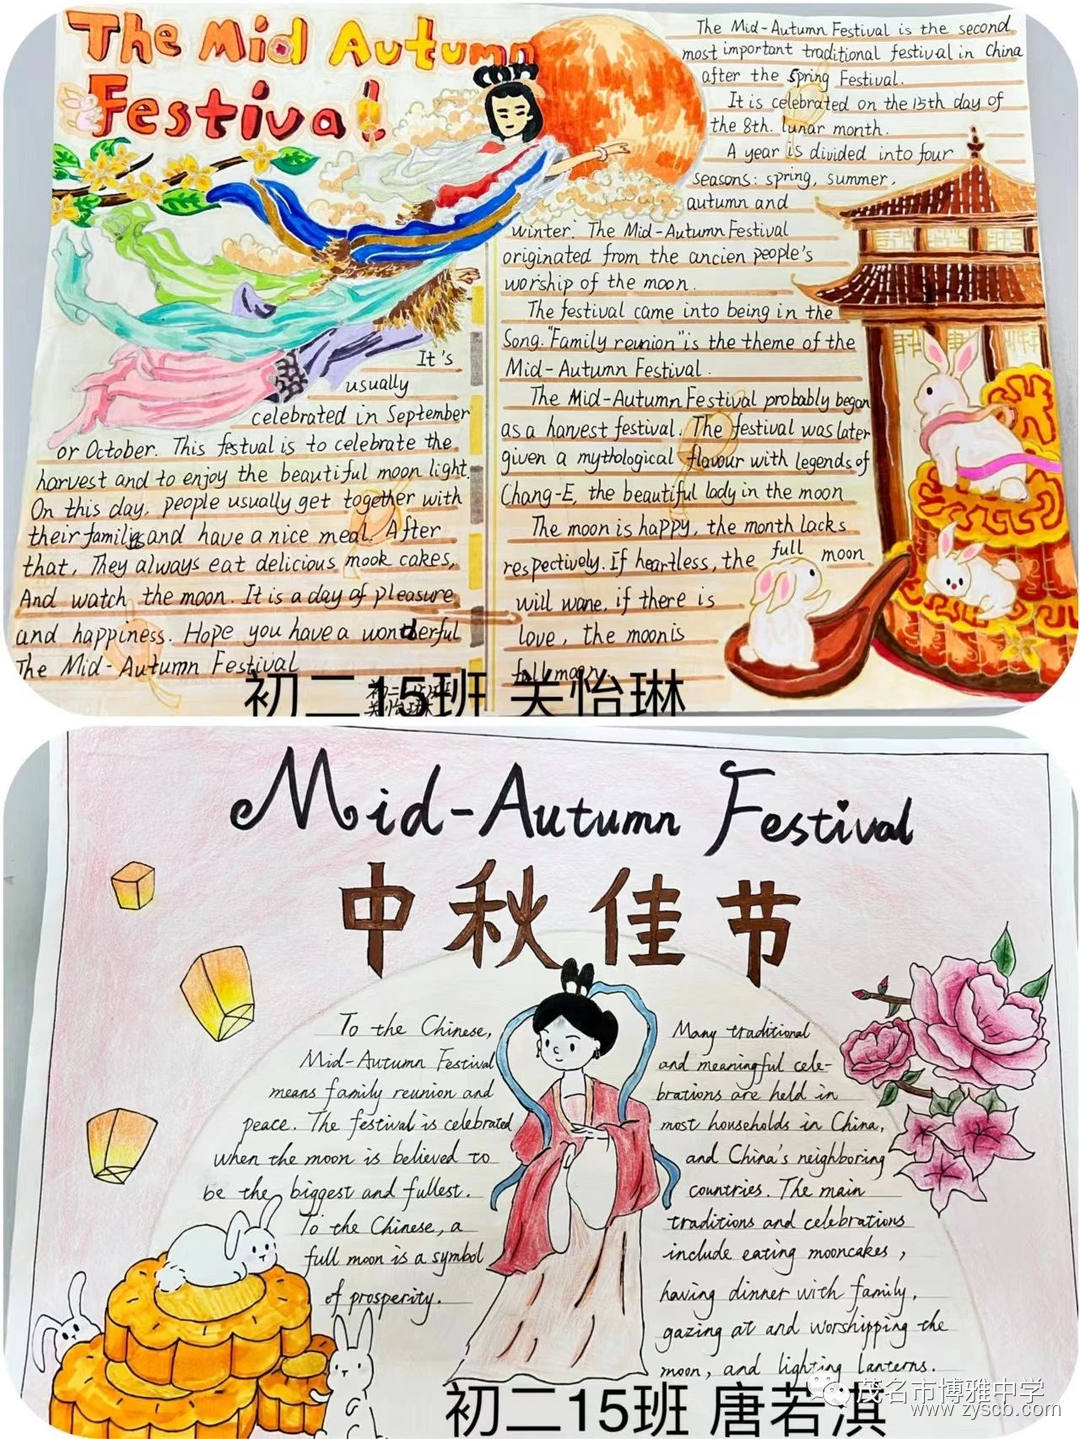 The Mid Autumn
Festival
It's
usually
celebrated in September
or October. This festual is to celebrate the
harvest and to enjoy the beautiful moon light.
On this day, people usually get together with
their families and have a nice meal. After
that, They always eat delicious mook cakes,
And watch the moon. It is a day of pleasure
and happiness. Hope you have a wonderful
The Mid-Autumn Festival
The Mid-Autumn Festival is the second
most important traditional festival in China
after the Spring Festival.
It is celebrated on the 15th day of
the 8th. lunar month.
A year is divided into four
seasons: spring, summer,
autumn and
winter. The Mid-Autumn Festival
originated from the ancien people's
worship of the moon.
The festival came into being in the
Song. "Family reunion" is the theme of the
Mid-Autumn Festival.
The Mid-Autumn Festival probably began
as a harvest festival. The festival was later
given a mythological flavour with legends of
Chang-E, the beautiful lady in the moon
The moon is happy, the month lacks
respectively. If heartless, the full moon
will wane, if there is
love, the moon is
full moon.
初二15班 关怡琳
Mid-Autumn Festival
中秋佳节
To the Chinese,
Mid-Autumn Festival
means family reunion and
peace. The festival is celebrated
when the moon is believed to
be the biggest and fullest.
To the Chinese, a
full moon is a symbol
of prosperity.
Many traditional
and meaningful cele-
brations are held in
most households in China,
and China's neighboring
countries. The main
traditions and celebrations
include eating mooncakes,
having dinner with family,
gazing at and worshipping the
moon, and lighting lanterns.
初二15班 唐若淇
茂名市博雅中学
www.zyscb.com